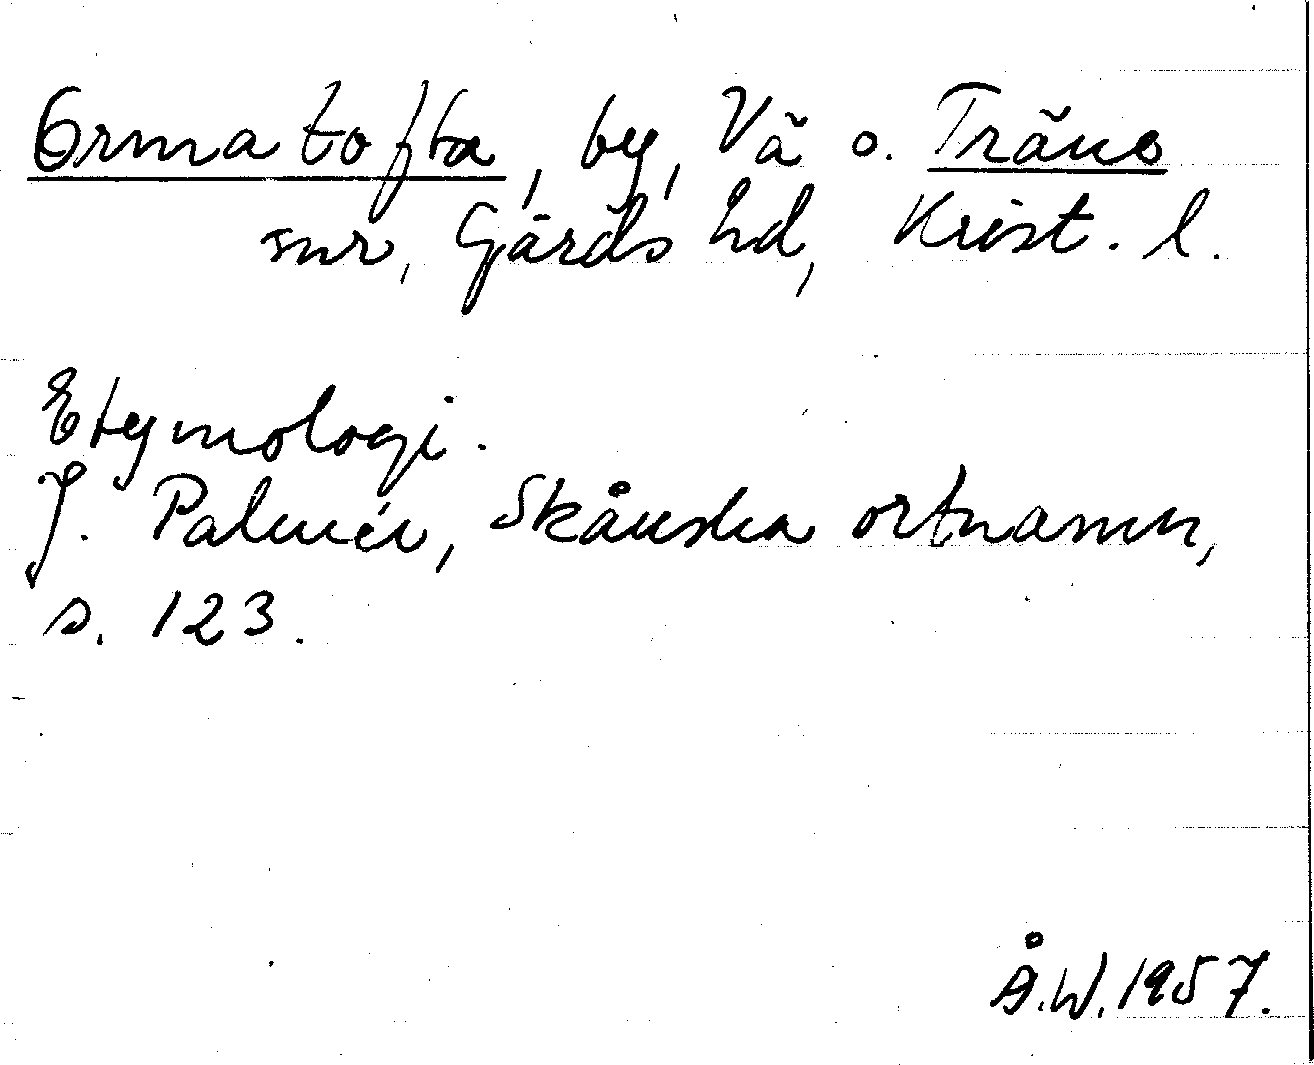 Ormatofta, by, Vä o. Träne
snr, Gärds hd, Krist. l.
Etymologi.
J. Palmér, Skånska ortnamn,
s. 123.
Å.W. 1957.